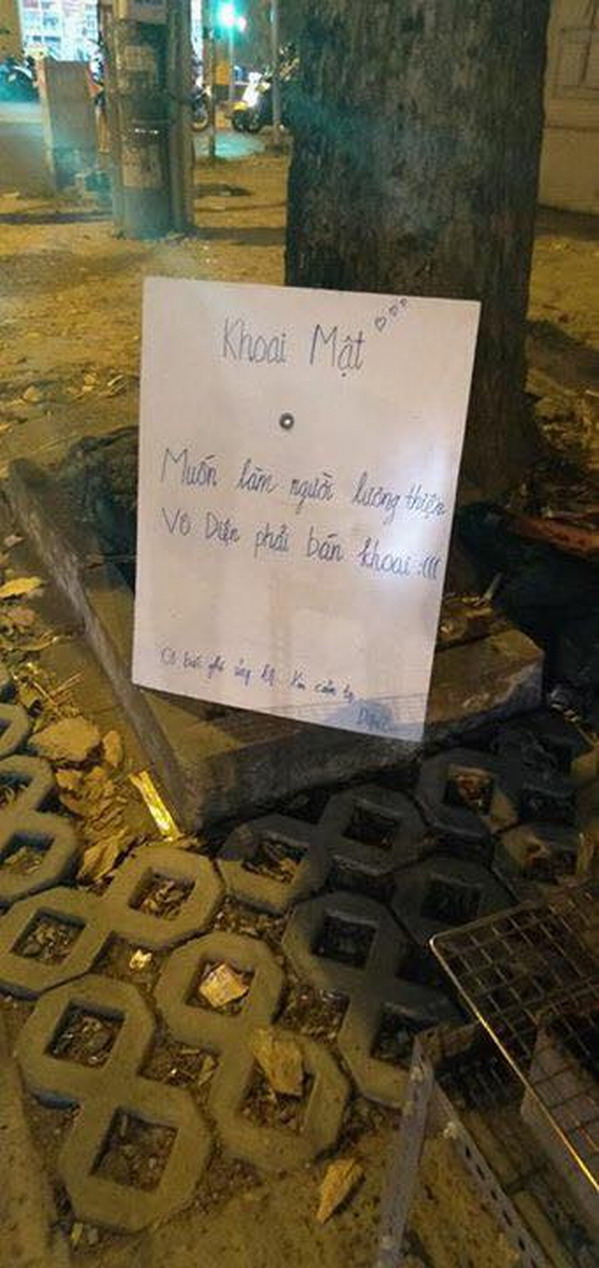 Khoai Mật
Muốn làm người lương thiện
Vô Diện phải bán khoai :(((
ủng hộ. Xin cảm ơn